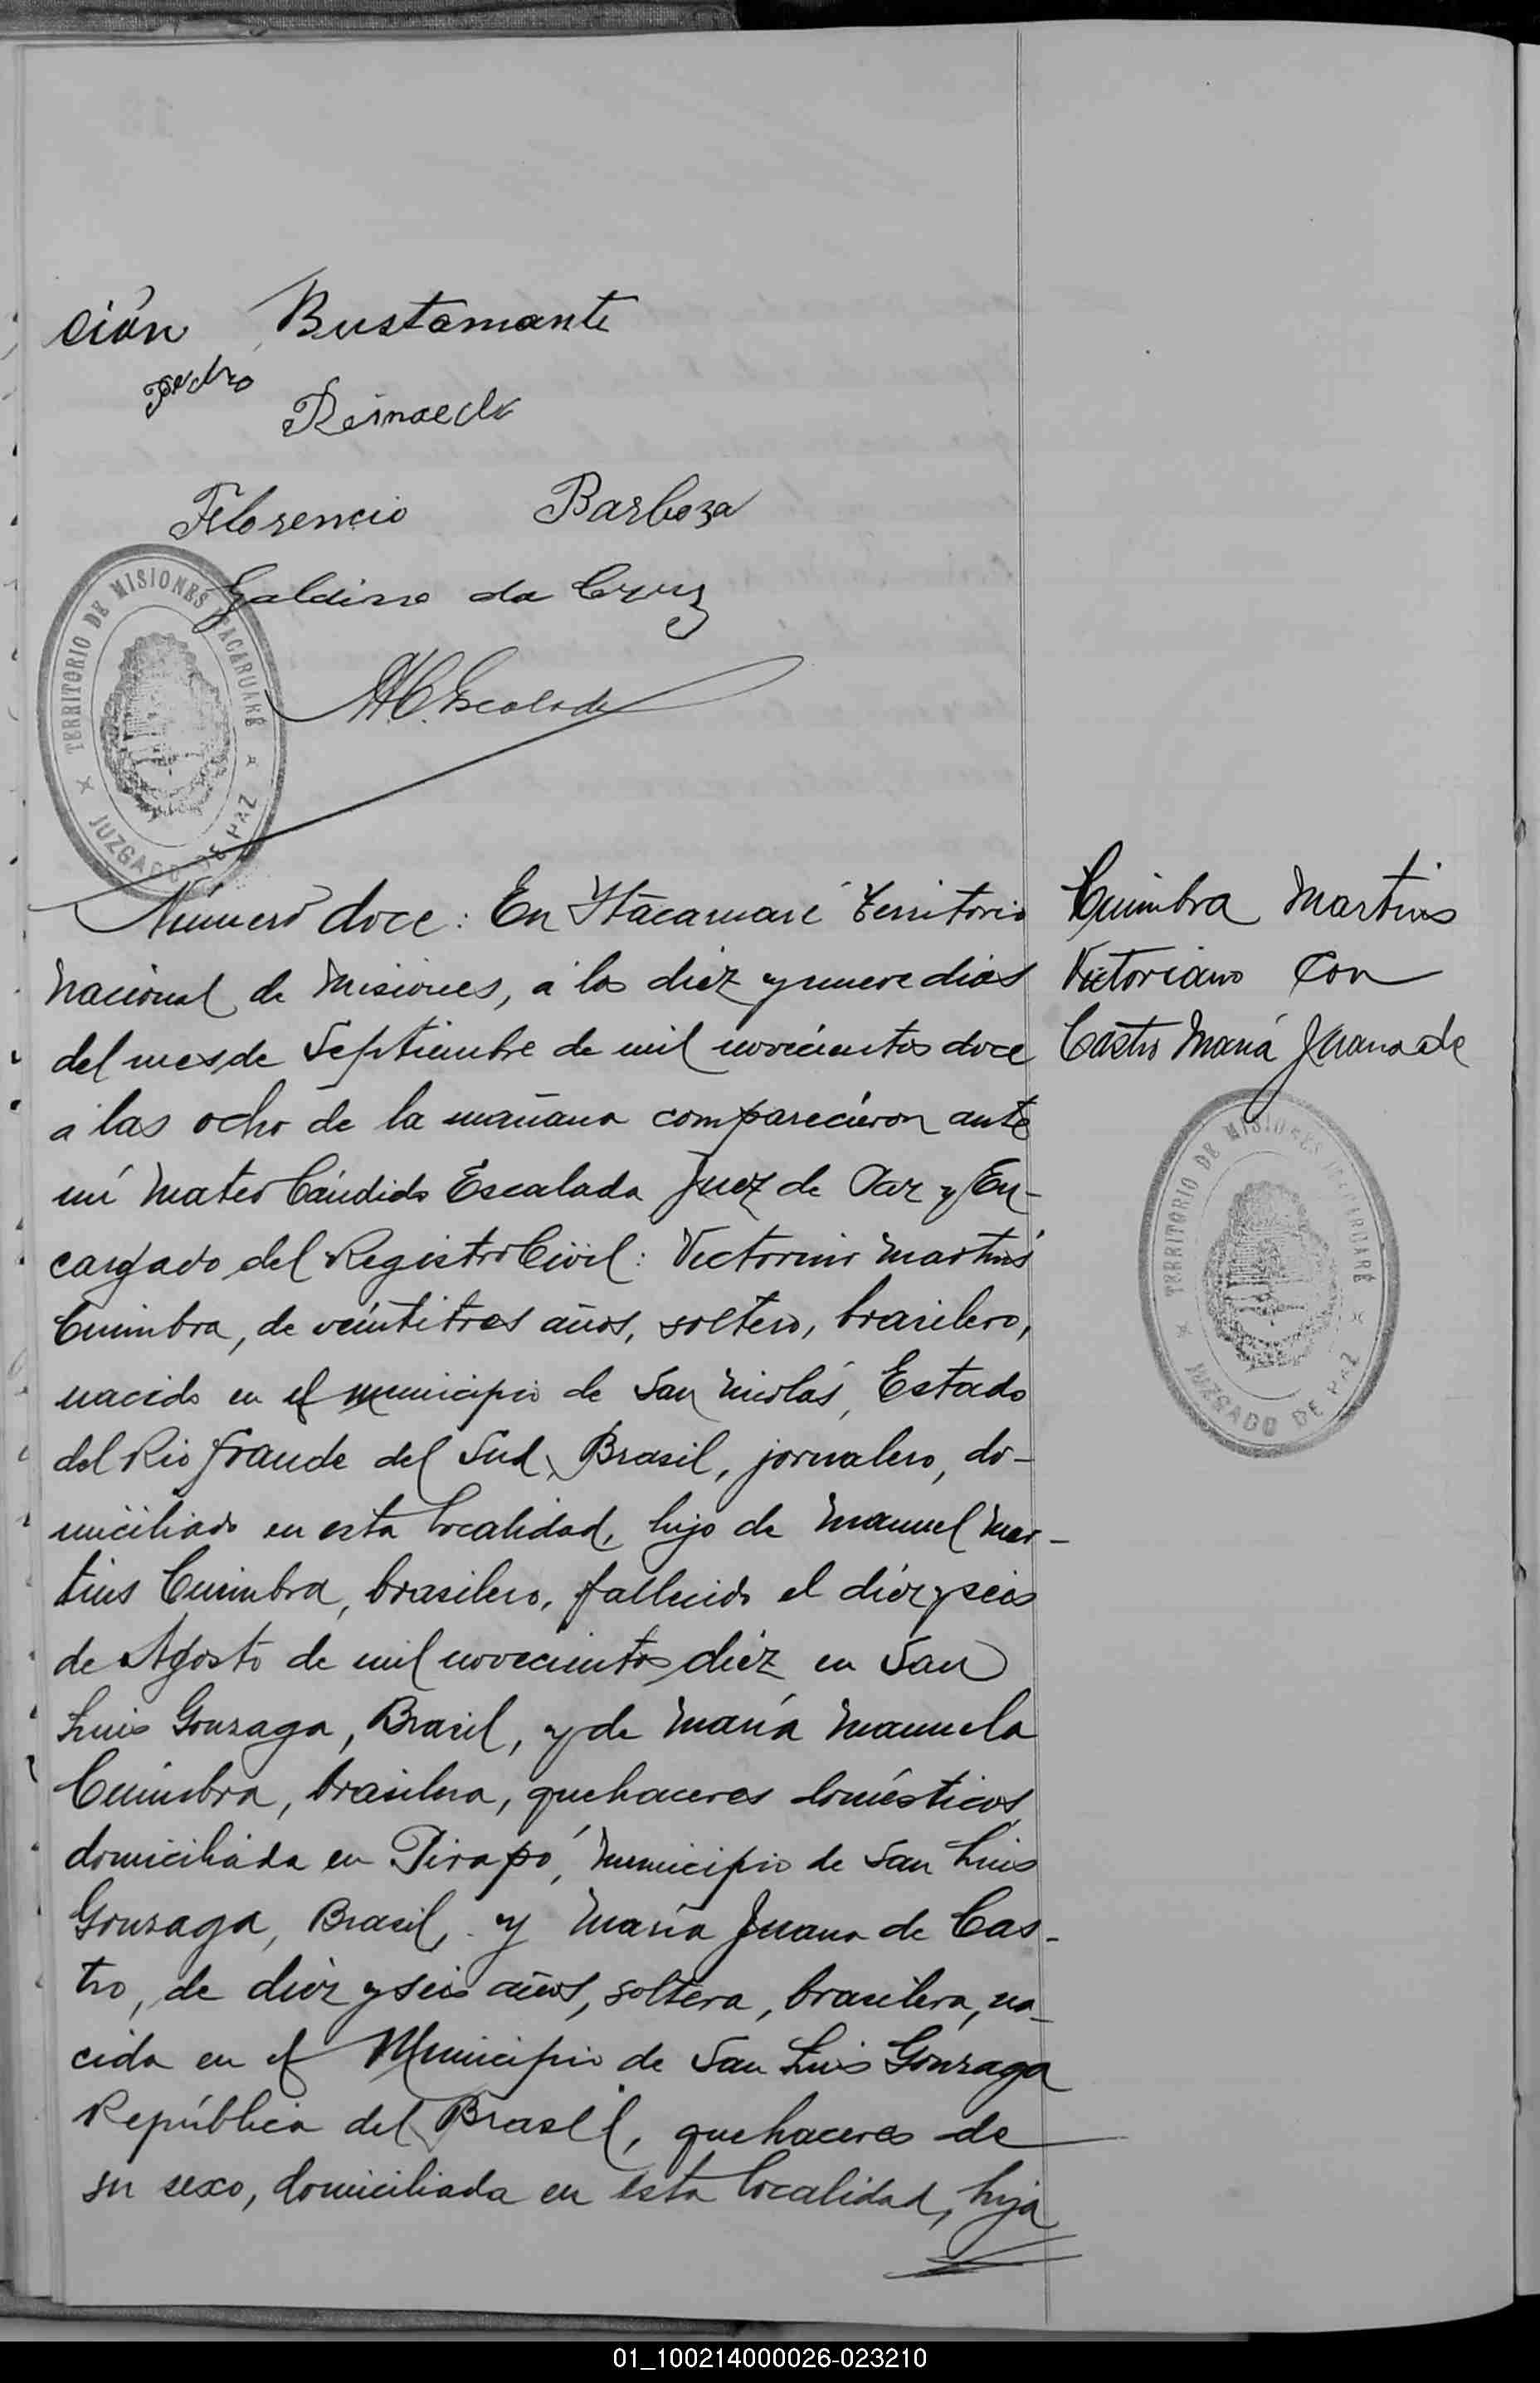 ción Bustamante
Pedro
Florencio Barboza
Galdino da Cruz
M C. Escalada
TERRITORIO DE MISIONES ITACARUARÉ
JUZGADO DE PAZ
Número doce: En Itacaruaré Territorio
Nacional de Misiones, a los diez y nueve dias
del mes de Septiembre de mil novecientos doce
a las ocho de la mañana comparecieron ante
mí Mateo Cándido Escalada Juez de Paz y En-
cargado del Registro Civil: Victorino Martins
Cuimbra, de veintitres años, soltero, brasilero,
nacido en el municipio de San Nicolás, Estado
del Rio Grande del Sud, Brasil, jornalero, do-
miciliado en esta localidad, hijo de Manuel Mar-
tins Cuimbra, brasilero, fallecido el diez y seis
de Agosto de mil novecientos diez en San
Luis Gonzaga, Brasil, y de María Manuela
Cuimbra, brasilera, quehaceres domésticos,
domiciliada en Pirapó, Municipio de San Luis
Gonzaga, Brasil, y María Juana de Cas-
tro, de diez y seis años, soltera, brasilera, na-
cida en el Municipio de San Luis Gonzaga
República del Brasil, quehaceres de
su sexo, domiciliada en esta localidad, hija
Cuimbra Martins
Victoriano con
Castro María Juana de
TERRITORIO DE MISIONES ITACARUARÉ
JUZGADO DE PAZ
01_100214000026-023210